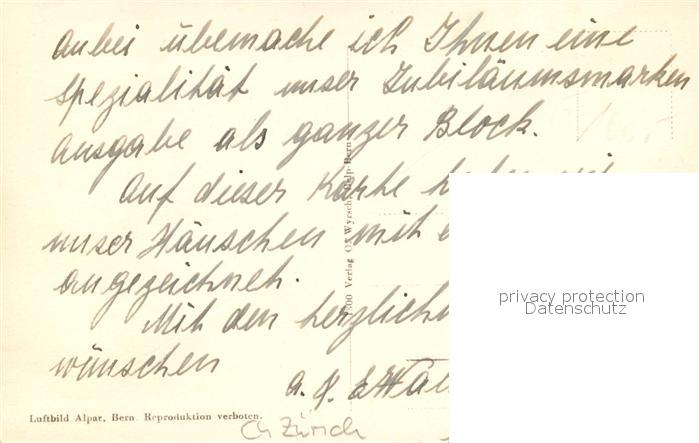 Anbei übermache ich Ihnen eine
Spezialität unser Jubiläumsmarken
ausgabe als ganzer Block.
Auf dieser Karte
unser Häuschen mit
angezeichnet.
Mit den herzlich
wünschen
Verlag O. Wyrsch, Wabern
privacy protection
Datenschutz
Luftbild Alpar, Bern. Reproduktion verboten.
CH Zürich